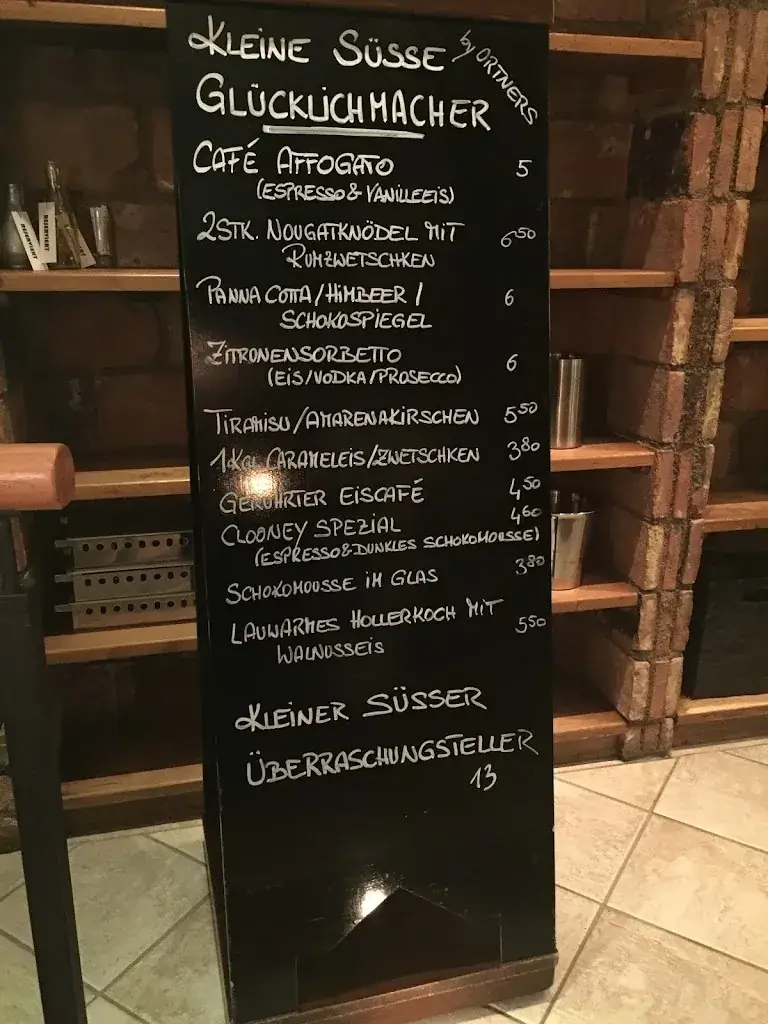 KLEINE SÜSSE
by ORTNERS
GLÜCKLICHMACHER
CAFÉ AFFOGATO 5
(ESPRESSO & VANILLEEIS)
2STK. NOUGATKNÖDEL MIT 6 50
RUMZWETSCHKEN
PANNA COTTA/HIMBEER/ 6
SCHOKOSPIEGEL
ZITRONENSORBETTO 6
(EIS/VODKA/PROSECCO)
TIRAMISU/AMARENAKIRSCHEN 5 50
1 KGL CARAMELEIS/ZWETSCHKEN 3 80
GERÜHRTER EISCAFÉ 4 50
CLOONEY SPEZIAL 4 60
(ESPRESSO & DUNKLES SCHOKOMOUSSE)
SCHOKOMOUSSE IM GLAS 3 80
LAUWARMES HOLLERKOCH MIT 5 50
WALNUSSEIS
KLEINER SÜSSER
ÜBERRASCHUNGSTELLER
13
RESERVIERT
RESERVIERT